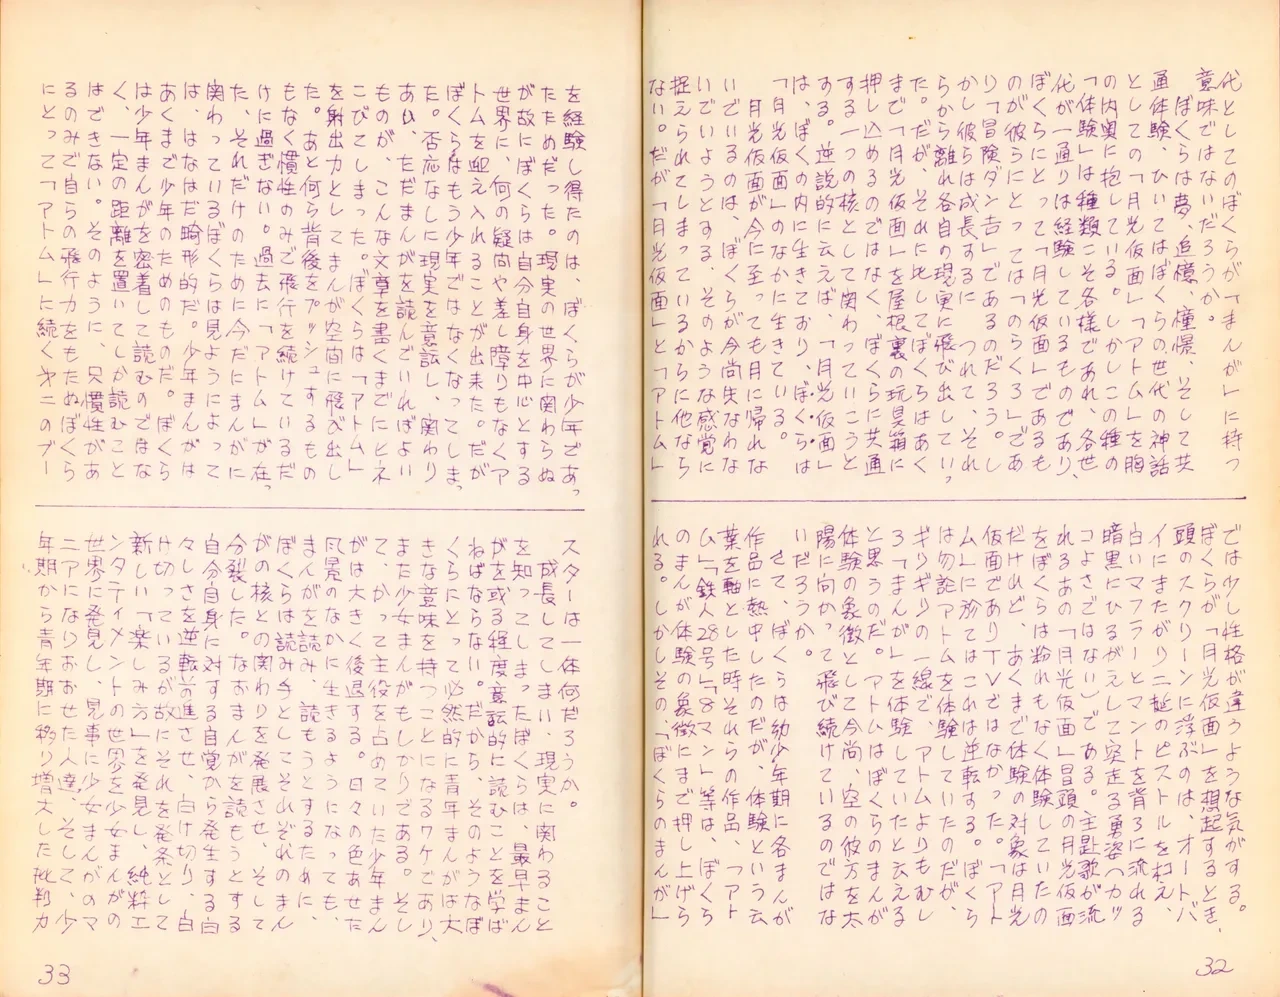 代としてのぼくらが「まんが」に持つ
意味ではないだろうか。
ぼくらは夢、追憶、憧憬、そして共
通体験、ひいてはぼくらの世代の神話
としての「月光仮面」「アトム」を胸
の内奥に抱している。しかしこの種の
「体験」は種類こそ各様であれ、各世
代が一通りは経験しているものであり、
ぼくらにとって「月光仮面」であるも
のが彼らにとっては「のらくろ」であ
り「冒険ダン吉」であるのだろう。し
かし彼らは成長するにつれて、それ
らから離れ各自の現実に飛び出してい
った。だが、それに比してぼくらはあく
まで「月光仮面」を屋根裏の玩具箱に
押し込めるのではなく、ぼくらに共通
する一つの核として関わっていこうと
する。逆説的に云えば、「月光仮面」
は、ぼくらの内に生きており、ぼくらは
「月光仮面」のなかに生きている。
月光仮面が今に至っても月に帰れな
いでいるのは、ぼくらが今尚失なわな
いでいようとする、そのような感覚に
捉えられてしまっているからに他なら
ない。だが「月光仮面」と「アトム」
では少し性格が違うような気がする。
ぼくらが「月光仮面」を想起するとき、
頭のスクリーンに浮ぶのは、オートバ
イにまたがり二挺のピストルをかまえ、
白いマフラーとマントを背ろに流れる
暗黒にひるがえして突走る勇姿(カッ
コよさではない)である。主題歌が流
れるあの「月光仮面」冒頭の月光仮面
をぼくらは紛れもなく体験していたの
だけれど、あくまで体験の対象は月光
仮面でありTVではなかった。「アト
ム」に於てはこれは逆転する。ぼくら
は勿論アトムを体験していたのだが、
ギリギリの一線で、アトムよりもむし
ろ「まんが」を体験していたと云える
と思うのだ。アトムはぼくらのまんが
体験の象徴として今尚、空の彼方を太
陽に向かって飛び続けているのではな
いだろうか。
さて、ぼくらは幼少年期に各まんが
作品に熱中したのだが、体験という云
葉を軸とした時それらの作品、「アト
ム」「鉄人28号」「8マン」等は、ぼくら
のまんが体験の象徴にまで押し上げら
れる。しかしその、「ぼくらのまんが」
32
を経験し得たのは、ぼくらが少年であっ
たためだった。現実の世界に関わらぬ
が故にぼくらは自分自身を中心とする
世界に、何の疑問や差し障りもなくア
トムを迎え入れることが出来た。だが
ぼくらはもう少年ではなくなってしまっ
た。否応なしに現実を意識し、関わり
あい、ただまんがを読んでいればよい
ものが、こんな文章を書くまでにヒネ
こびてしまった。ぼくらは「アトム」
を射出力としてまんが空間に飛び出し
た。あと何ら背後をプッシュするもの
もなく慣性のみで飛行を続けているだ
けに過ぎない。過去に「アトム」が在っ
た、それだけのために今だにまんがに
関わっているぼくらは見ようによって
は、はなはだ畸形的だ。少年まんがは
あくまで少年のためのものだ。ぼくら
は少年まんがを密着して読むのではな
く、一定の距離を置いてしか読むこと
はできない。そのように、只慣性があ
るのみで自らの飛行力をもたぬぼくら
にとって「アトム」に続く第二のブー
スターは一体何だろうか。
成長してしまい、現実に関わること
を知ってしまったぼくらは、最早まん
がを或る程度意識的に読むことを学ば
ねばならない。だから、そのようなぼ
くらにとって必然的に青年まんがは大
きな意味を持つことになるワケであり、
また少女まんがもしかりである。そし
て、かって主役を占めていた少年まん
がは大きく後退する。日々の色あせた
風景のなかに生きるようになっても、
まんがを読み、読もうとするために、
ぼくらは読み手としてそれぞれのまん
がの核との関わりを発展させ、そして
分裂した。なおまんがを読もうとする
自分自身に対する自覚から発生する白
々しさを逆転前進させ、白け切り、白
け切っているが故にそれを発条として
新しい「楽しみ方」を発見し、純粋エ
ンタティメントの世界を少女まんがの
世界に発見し、見事に少女まんがのマ
ニアになりおおせた人達、そして、少
年期から青年期に移り増大した批判力
33